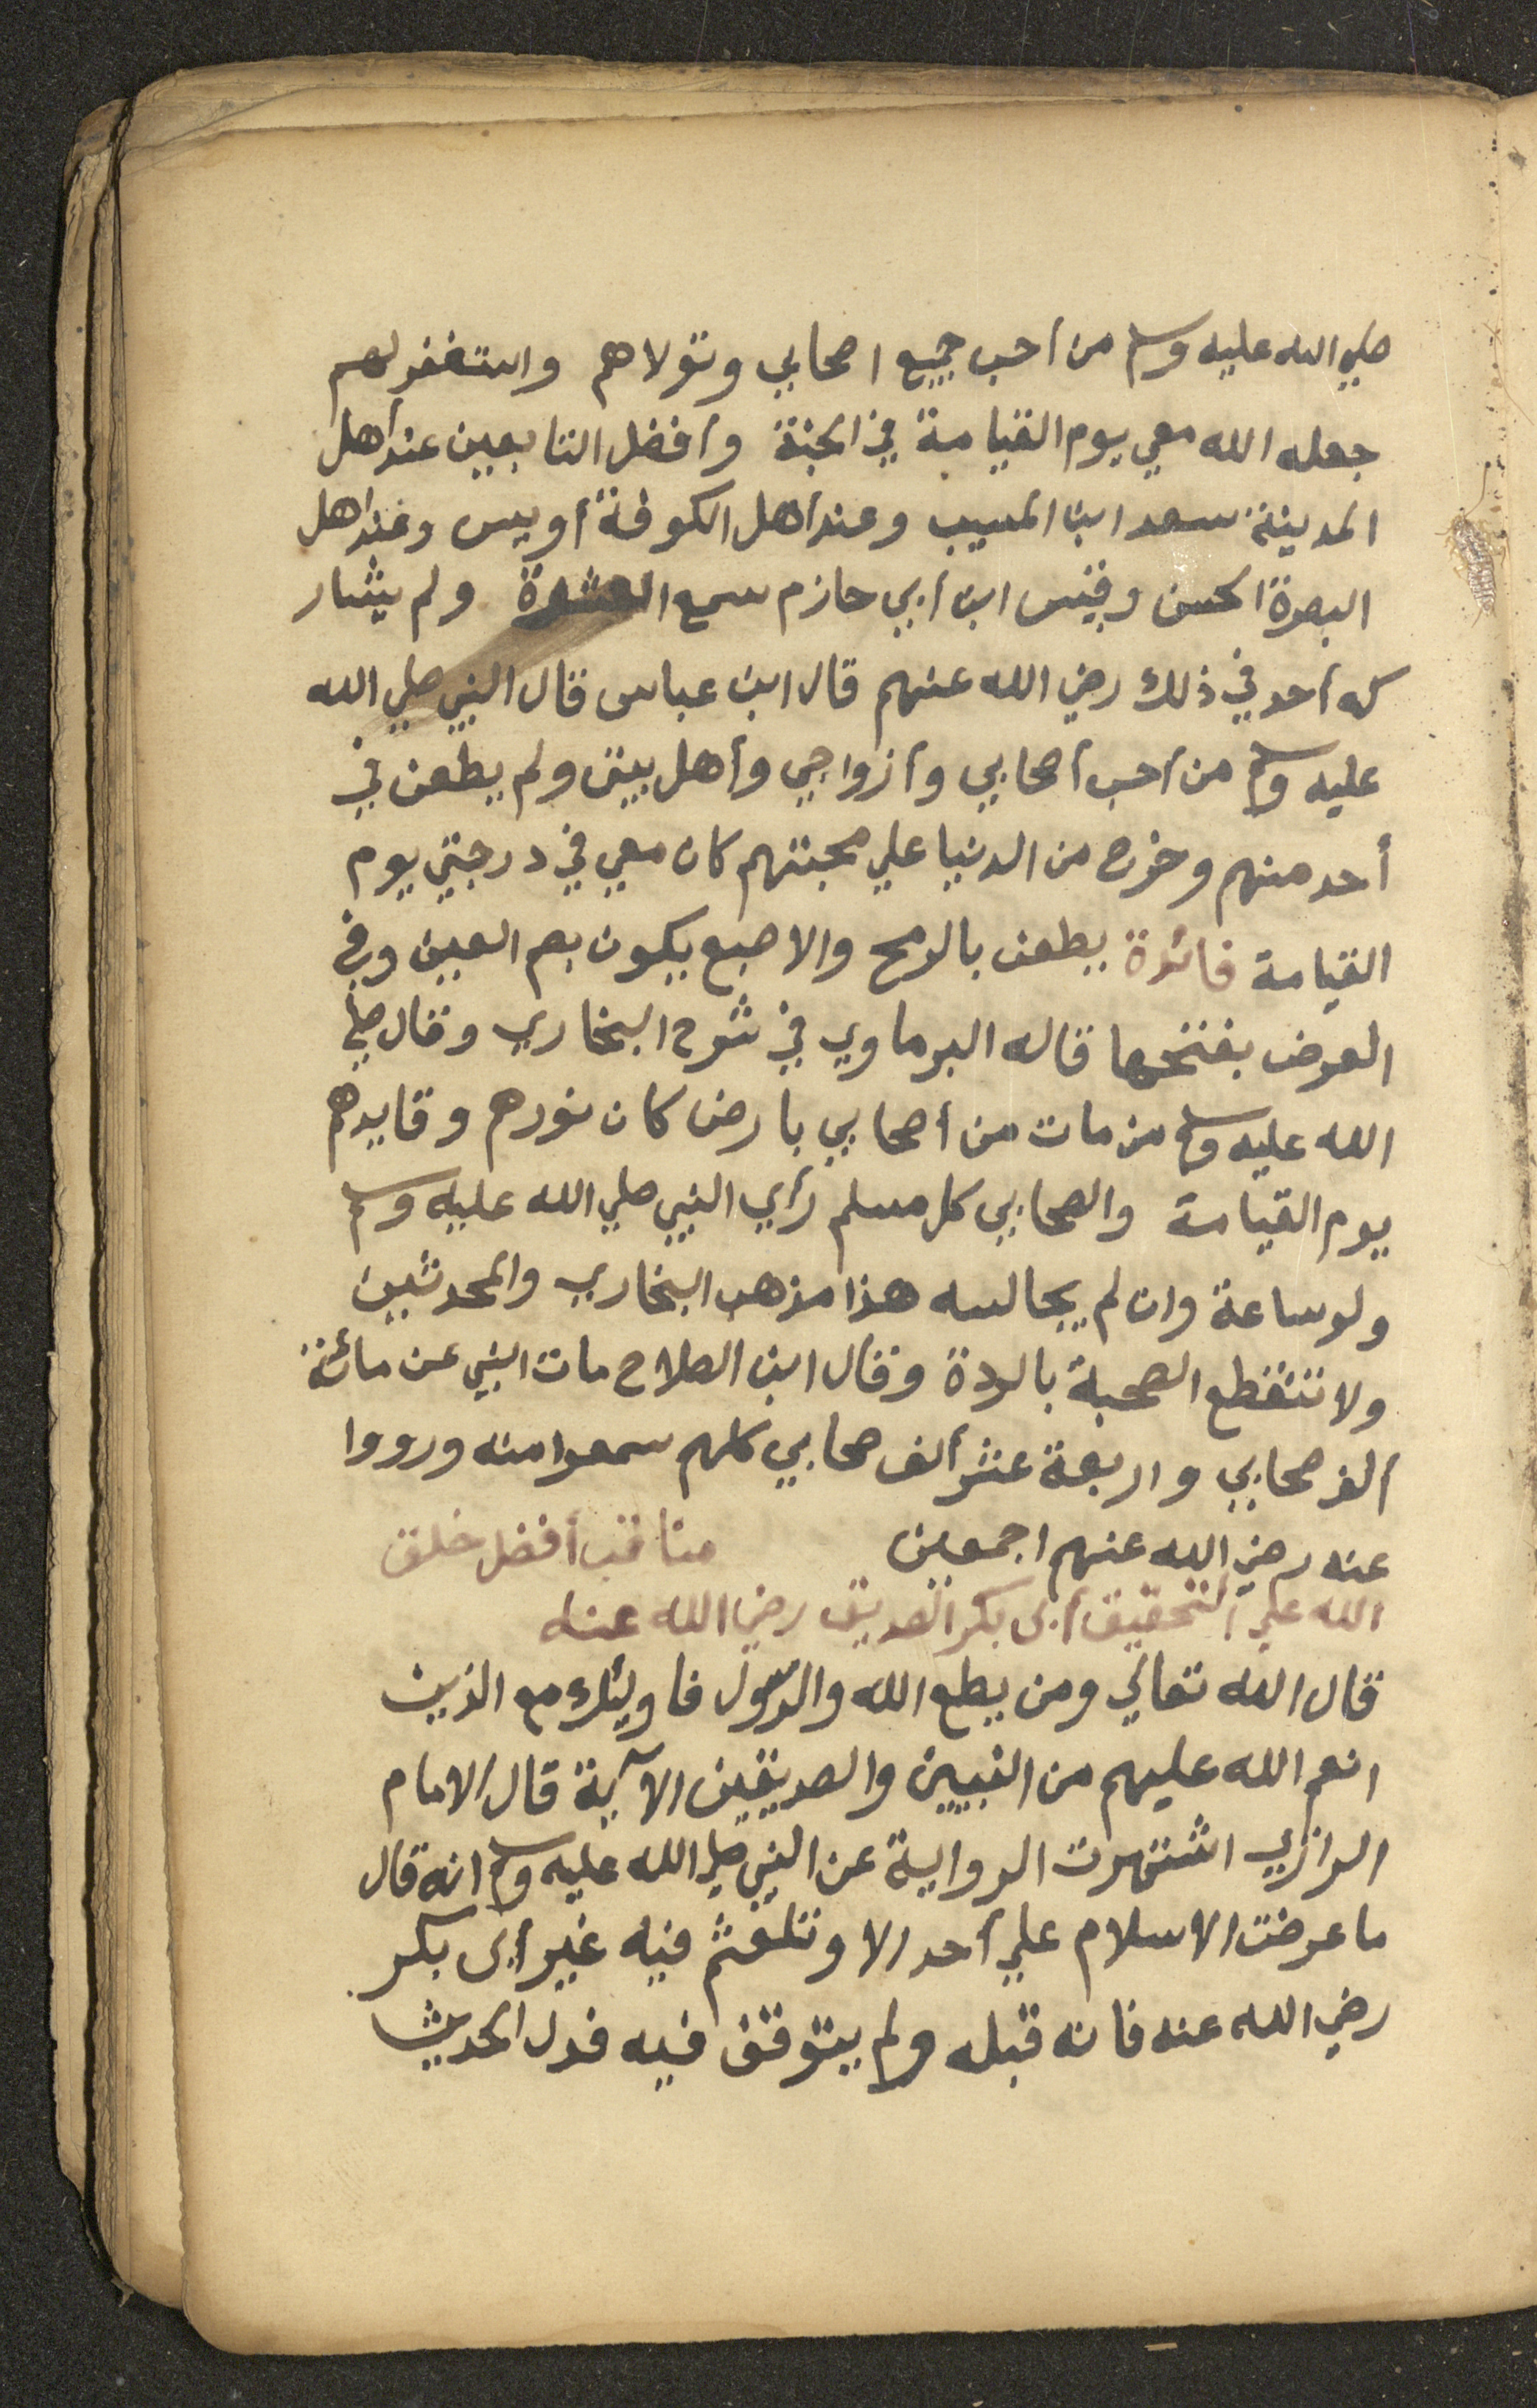 صلي الله عليه وسلم من أحب جميع اصحابي وتولاهم واستغفر لهم
جعله الله معي يوم القيامة في الجنة وأفضل التابعين عند أهل
المدينة سعد ابن المسيب وعند أهل الكوفة أويس وعند أهل
البصرة الحسن وقيس ابن أبي حازم سمع العشرة ولم يشار
كه أحد في ذلك رضي الله عنهم قال ابن عباس قال النبي صلي الله
عليه وسلم من أحب أصحابي وأزواجي وأهل بيتي ولم يطعن في
أحد منهم وخرج من الدنيا علي محبتهم كان معي في درجتي يوم
القيامة فائدة يطعن بالرمح والاصبع يكون بضم العين وفي
العرض بفتحها قاله البرماوي في شرح البخاري وقال صلي
الله عليه وسلم من مات من أصحابي بارض كان نورهم وقايدهم
يوم القيامة والصحابي كل مسلم رأي النبي صلي الله عليه وسلم
ولو ساعة وان لم يجالسه هذا مذهب البخاري والمحدثين
ولا تنقطع الصحبة بالردة وقال ابن الصلاح مات النبي عن مائة
ألف صحابي واربعة عشر ألف صحابي كلهم سمعوا منه ورووا
عنه رضي الله عنهم اجمعين مناقب أفضل خلق
الله علي التحقيق أبي بكر الصديق رضي الله عنه
قال الله تعالي ومن يطع الله والرسول فاوليئك مع الذين
انعم الله عليهم من النبيين والصديقين الآية قال الامام
الرازي اشتهرت الرواية عن النبي صلي الله عليه وسلم انه قال
ما عرضت الاسلام علي أحد الا وتلعثم فيه غير أبي بكر
رضي الله عنه فانه قبله ولم يتوقف فيه فدل الحديث